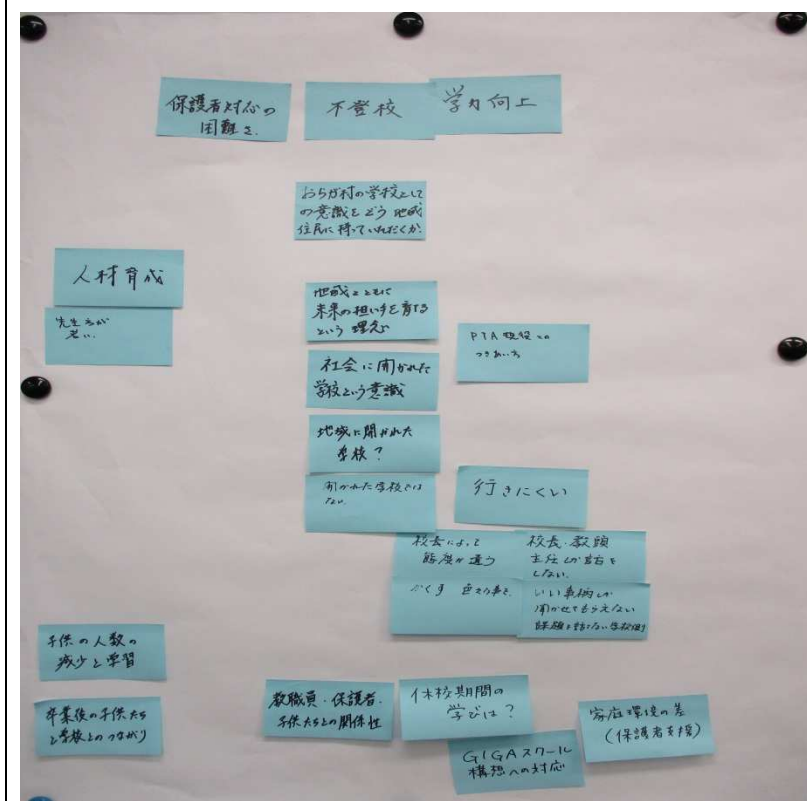 保護者対応の
困難さ
不登校
学力向上
おらが村の学校として
の意識をどう地域
住民に持っていただくか
人材育成
先生方が
若い
地域とともに
未来の担い手を育てる
という理念
PTA
つきあい方
社会に開かれた
学校という意識
地域に開かれた
学校?
開かれた学校では
ない
行きにくい
校長によって
態度が違う
校長・教頭
主任しか話を
しない
かくす
いい事柄しか
聞かせてもらえない
課題を話さない学校側
子供の人数の
減少と学習
卒業後の子供たち
と学校とのつながり
教職員・保護者・
子供たちとの関係性
休校期間の
学びは?
GIGAスクール
構想への対応
家庭環境の差
(保護者支援)